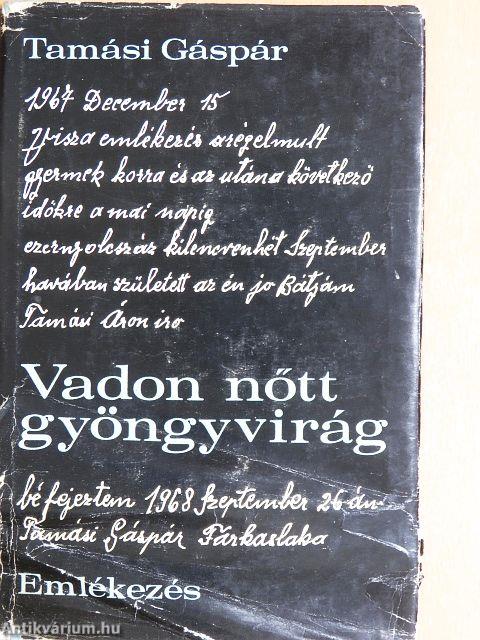 Tamási Gáspár
1967 December 15
Visza emlékezés arégelmult
gyermek korra és az utána következö
idökre a mai napig
ezernyolcszáz kilencvenhét Szeptember
havában született az én jo Bátyám
Tamási Áron iro
Vadon nőtt
gyöngyvirág
bé fejeztem 1968 Szeptember 26 án
Tamási Gáspár Fárkaslaka
Emlékezés
Antikvárium.hu